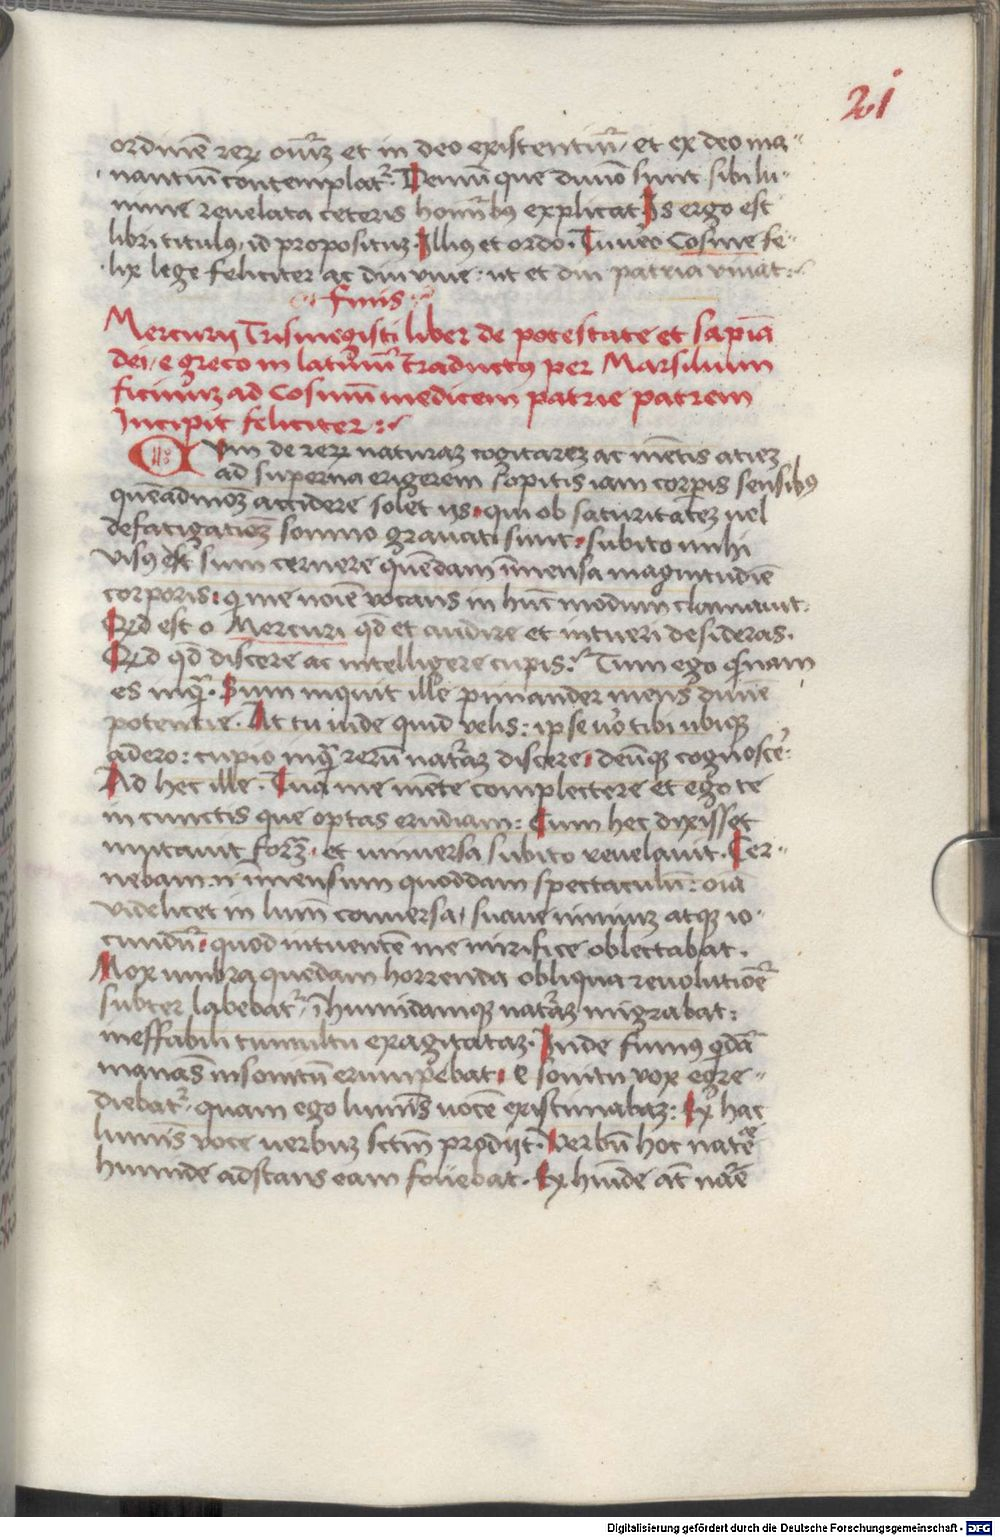 21
ordinē rerꝝ om̄iꝫ et in deo existentiū et ex deo ma-
nantiū contemplatᷣ. Demū que diuīo sunt sibi lu-
mine reuelata ceteris hom̄ibus explicat Is ergo est
libri titulus, id propositum. Illius et ordo. Tu vero Cosme fe-
lix lege feliciter ac diu viue: ut et diu patria viuat:
finis
Mercurij Trismegisti liber de potestate et sapīa
dei, e greco in latinū traductus per Marsilium
ficinuꝫ ad Cosmū medicem patrie patrem
Incipit feliciter:
Cum de rerꝝ naturaꝫ cogitareꝫ ac mētis atieꝫ
ad superna erigerem sopitis iam corporis sensibus
quēadmoꝫ accidere solet ijs qui ob saturitateꝫ uel
defatigationeꝫ somno grauati sunt subito mihi
visus est sum cernere quēdam īmensa magnitudīe
corporis: qui me noīe vocans in hūc modum clamauit.
Qͥd est o Mercuri qd̄ et audire et intueri desideras.
Qͥd qd̄ discere ac intelligere cupis? Tum ego quisnam
es inquā. Sum inquit ille pimander mens diuīe
potentie. At tu inde quid velis: ipse uo tibi ubiqꝫ
adero: cupio inquā rerū naturaꝫ discere deūqꝫ cognoscere:
Ad hec ille. Tua me mēte complectere et ego te
in cunctis que optas erudiam: Cum hec dixisset
mutauit formā et uniuersa subito reuelauit. Cer-
nebam .n. īmensum quoddam spectaculū: oīa
videlicet in lumē conuersa, suaue nimiuꝫ atqꝫ io-
cundū quod intuentē me mirifice oblectabat.
Mox umbra quedam horrenda obliqua reuolutione
subter labebatᷣ, ī humidamqꝫ naturaꝫ migrabat:
ineffabili tumultu exagitataꝫ. Inde fumus quidā
manās in sonitū erumpebat e sonitu vox egre-
diebatᷣ. quam ego luminis uocē existimabaꝫ: Ex hac
luminis voce uerbuꝫ sctm̄ prodijt. Verbū hoc nature
humide adstans eam fouebat. Ex humide aūt nature
Digitalisierung gefördert durch die Deutsche Forschungsgemeinschaft - DFG